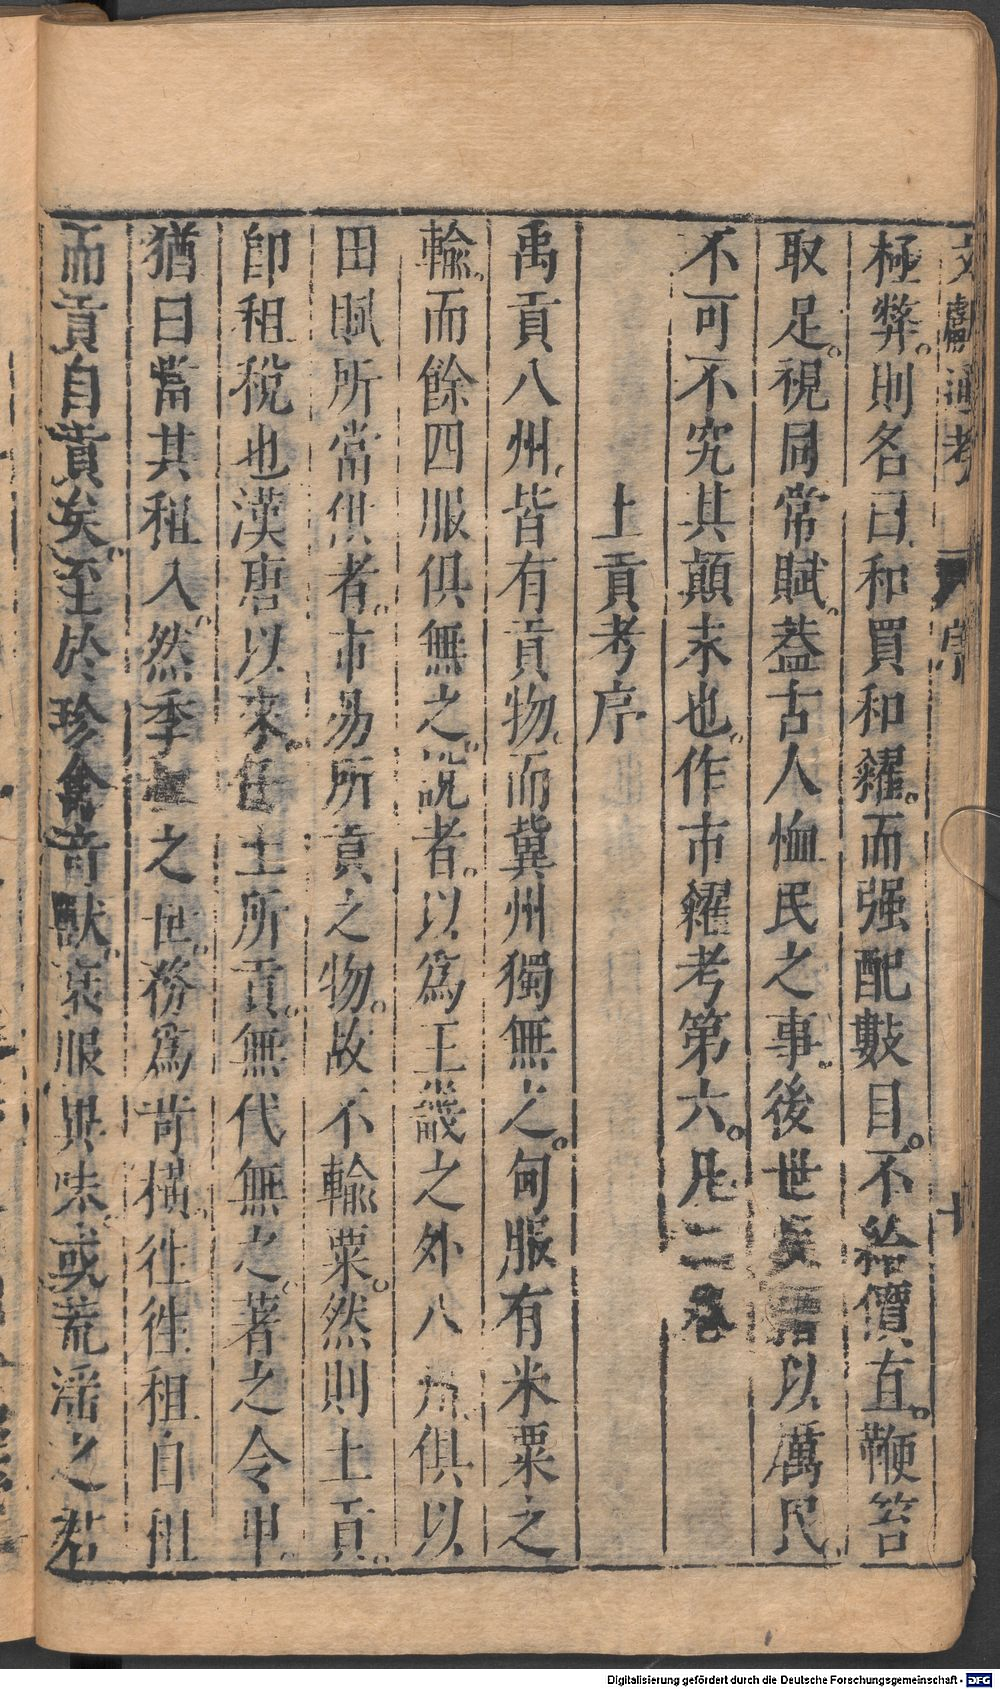 文獻通考 序 十
極弊。則名曰和買和糴。而强配數目。不給價直。鞭笞
取足。視同常賦。蓋古人恤民之事。後世以厲民。
不可不究其顛末也。作市糴考第六。凡二卷
土貢考序
禹貢八州皆有貢物。而冀州獨無之。甸服有米粟之
輸。而餘四服俱無之。説者。以爲王畿之外八州俱以
田賦所當供者。市易所貢之物。故不輸粟。然則土貢。
卽租稅也漢唐以來。任土所貢。無代無之。著之令甲。
猶曰當其租入。然季之世。務爲苛橫。徃徃租自租
而貢自貢矣。至於珍禽奇獸。袤服異味。或荒淫之君
Digitalisierung gefördert durch die Deutsche Forschungsgemeinschaft - DFG